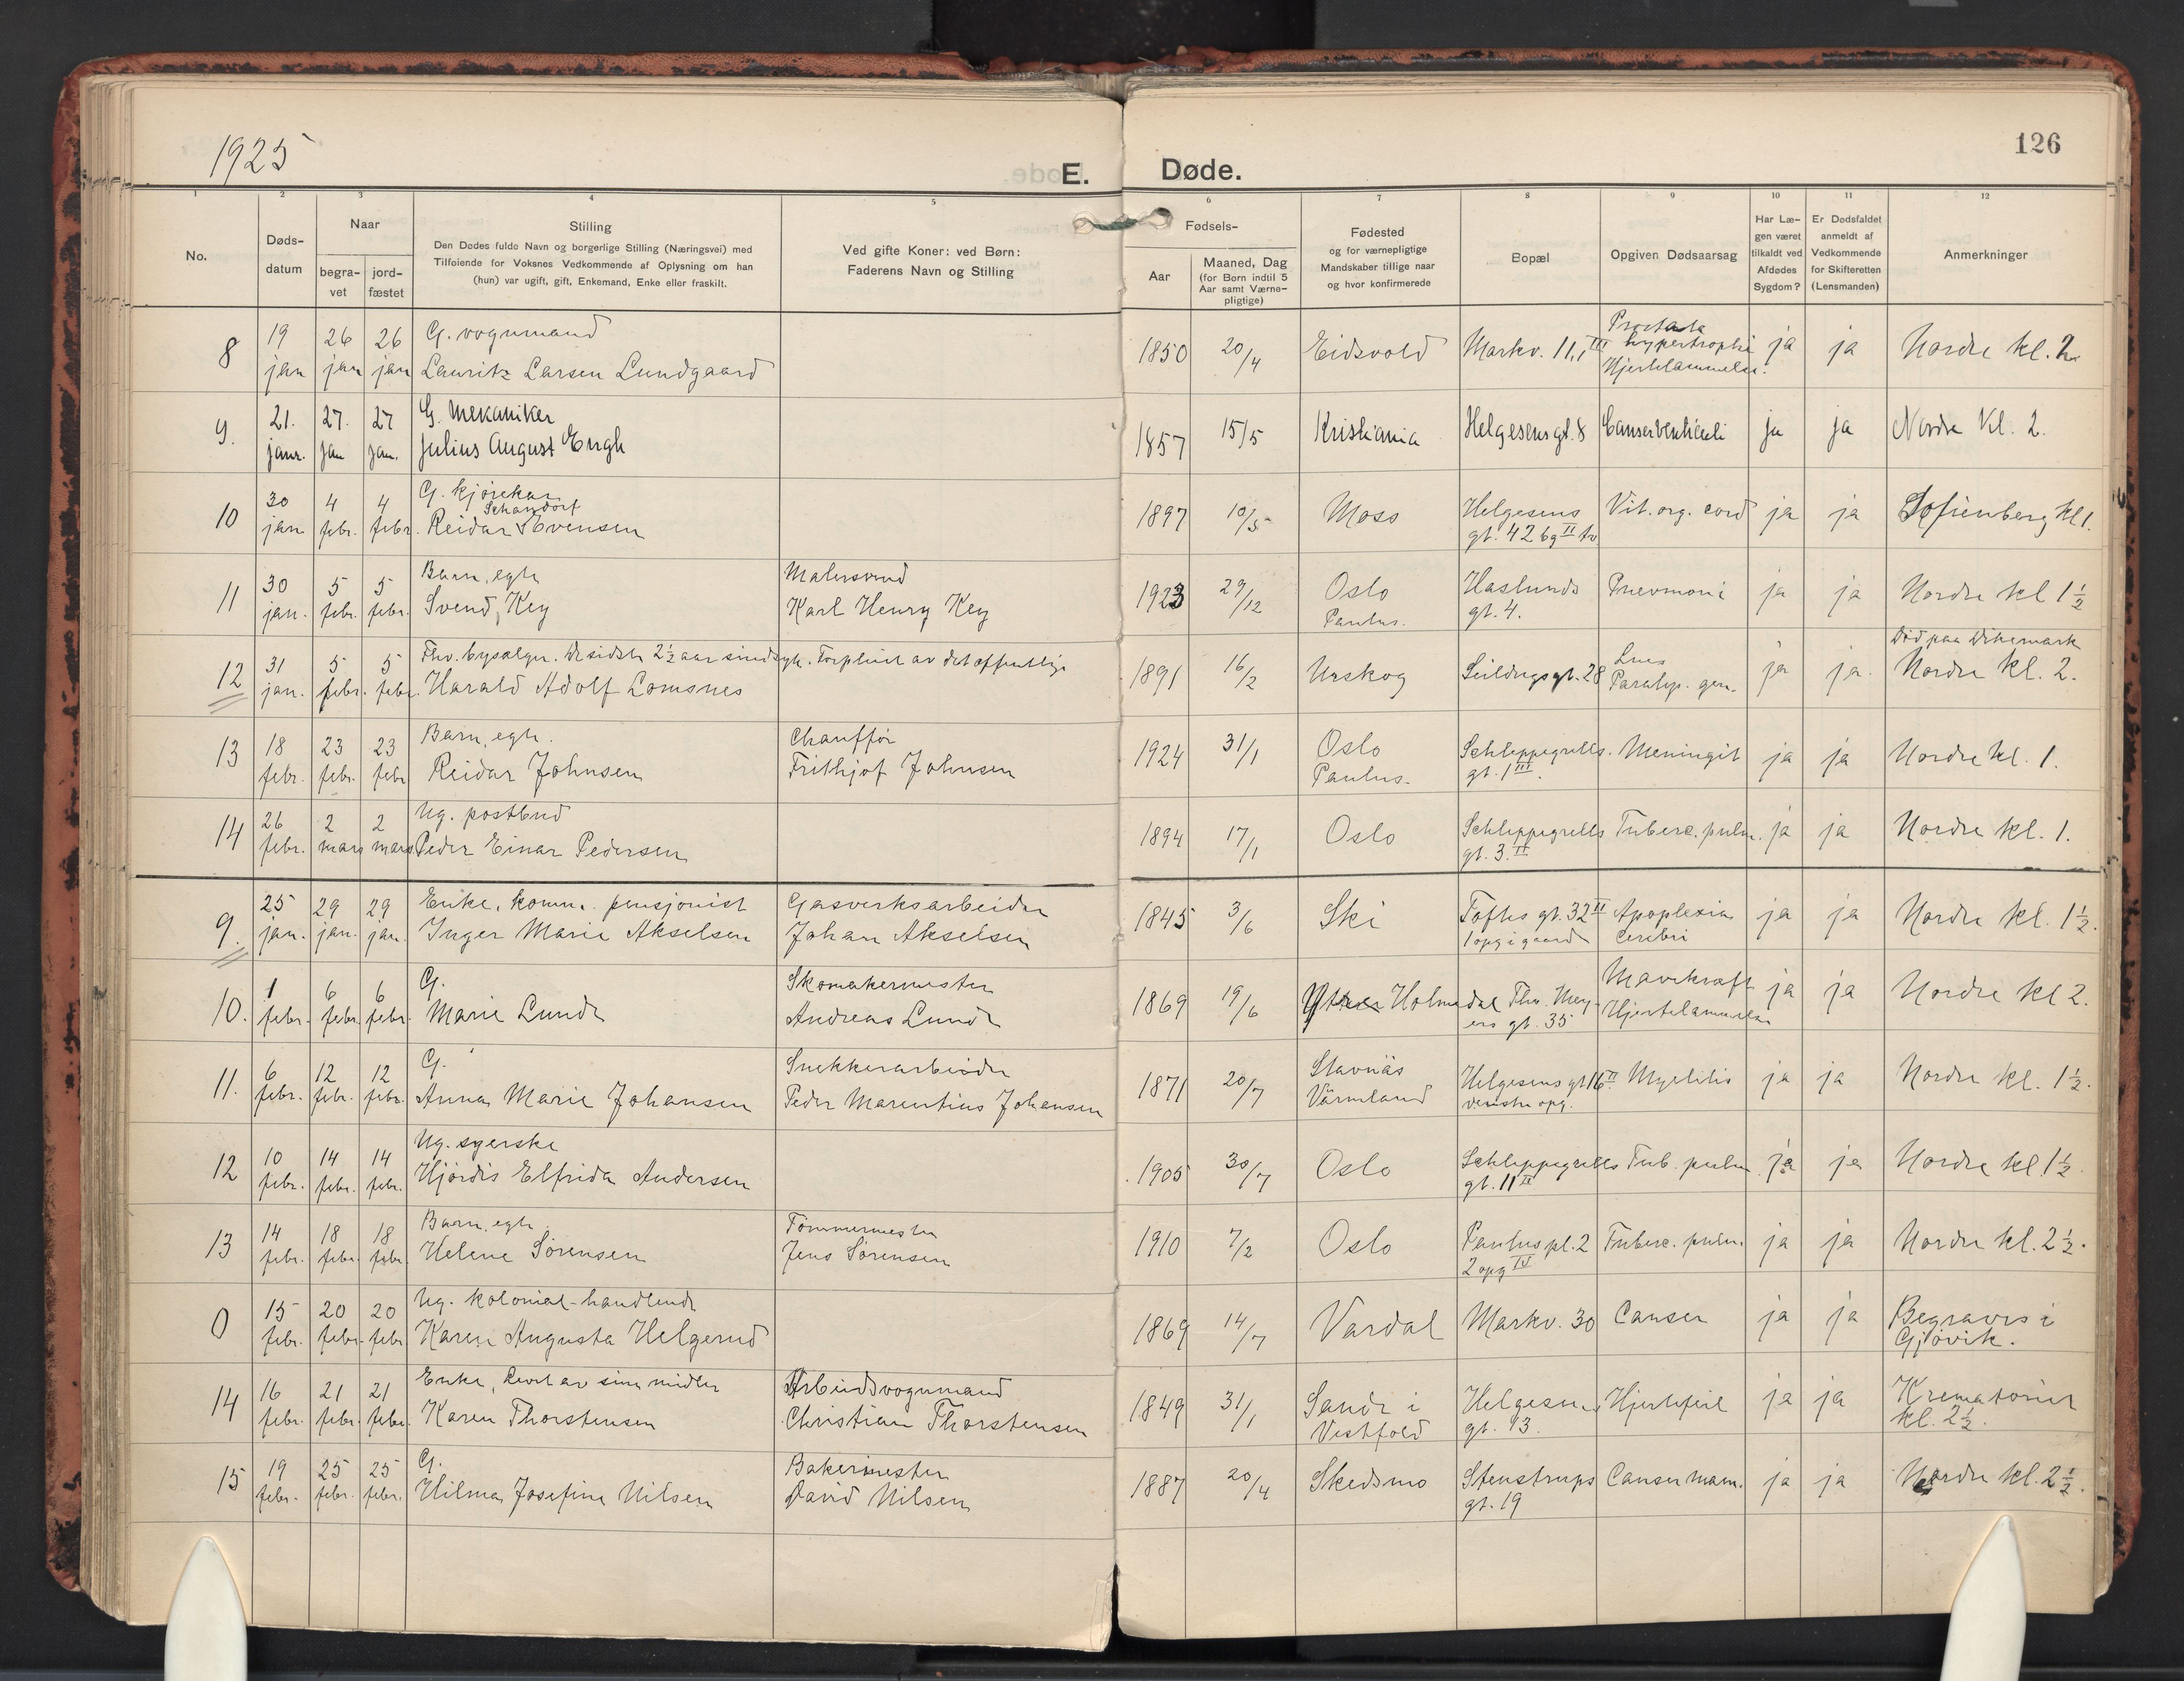 1925
E. Døde.
126
1 2 3 4 5 6 7 8 9 10 11 12
No.
Døds-
datum
Naar
begra-
vet
jord-
fæstet
Stilling
Den Dødes fulde Navn og borgerlige Stilling (Næringsvei) med
Tilføiende for Voksnes Vedkommende af Oplysning om han
(hun) var ugift, gift, Enkemand, Enke eller fraskilt.
Ved gifte Koner: ved Børn:
Faderens Navn og Stilling
Fødsels-
Aar
Maaned, Dag
(for Børn indtil 5
Aar samt Værne-
pligtige)
Fødested
og for værnepligtige
Mandskaber tillige naar
og hvor konfirmerede
Bopæl
Opgiven Dødsaarsag
Har Læ-
gen været
tilkaldt ved
Afdødes
Sygdom?
Er Dødsfaldet
anmeldt af
Vedkommende
for Skifteretten
(Lensmanden)
Anmerkninger
8 19 jan 26 jan 26 jan G. vognmand
Lauritz Larsen Lundgaard 1850 20/4 Eidsvold Markv. 11, III Prostata
hypertrophi
Hjertelammelse. ja ja Nordre kl. 2
9. 21. janr. 27. jan 27 jan. G. Mekaniker
Julius August Engh 1857 15/5 Kristiania Helgesens gt. 8 Canser ventriculi ja ja Nordre Kl. 2.
10 30 jan 4 febr. 4 febr. G. kjørekar
Schandorf
Reidar Evensen 1897 10/5 Moss Helgesens
gt. 42 bg II tv Vit. org. cord ja ja Sofienberg kl 1.
11 30 jan. 5 febr. 5 febr. Barn, egte
Svend, Key Malersvend
Karl Henry Key 1923 29/12 Oslo
Paulus. Haslunds
gt. 4. Pnevmoni ja ja Nordre kl 1 1/2
12 31 jan. 5 febr. 5 febr. Fhv. bysælger. De sidste 2 1/2 aar sindsyk. Forpleiet av det offentlige
Harald Adolf Lomsnes 1891 16/2 Urskog Seildugsgt. 28 Lues
Paralys. gen. ja ja. Død paa Dikemark
Nordre kl. 2.
13 18 febr. 23 febr. 23 febr Barn, egte.
Reidar Johnsen Chauffør
Frithjof Johnsen 1924 31/1 Oslo
Paulus. Schleppegrells.
gt. 1 III. Meningit ja ja Nordre kl. 1.
14 26 febr. 2 mars 2 mars Ug. postbud
Peder Einar Pedersen 1894 17/1 Oslo Schleppegrells
gt. 3. II Tuberc. pulm. ja ja Nordre kl. 1.
9. 25 jan. 29 jan. 29 jan. Enke, komm. pensjonist
Inger Marie Akselsen Gasverksarbeider
Johan Akselsen 1845 3/6 Ski Toftes gt. 32 II
1 opg i gaard Apoplexia
Cerebri ja ja Nordre kl. 1 1/2.
10. 1 febr. 6 febr. 6 febr. G.
Marie Lunde Skomakermester
Andreas Lunde 1869 19/6 Ytre Holmedal Thv. Mey-
ers gt. 35 Mavekræft
Hjertelammelse ja ja Nordre kl 2.
11. 6 febr. 12 febr. 12 febr. G.
Anna Marie Johansen Snekkerarbeider
Peder Marentius Johansen 1871 20/7 Stavnäs
Värmland Helgesens gt 16 II
venstre opg. Myelitis ja ja Nordre kl. 1 1/2.
12 10 febr. 14 febr. 14 febr. Ug. syerske
Hjørdis Elfrida Andersen 1905 30/7 Oslo Schleppegrells
gt. 11 II Tub. pulm ja ja Nordre kl 1 1/2.
13 14 febr. 18 febr. 18 febr Barn, egte
Helene Sørensen Tømmermester
Jens Sørensen 1910 7/2 Oslo Pauluspl. 2
2 opg IV Tuberc. pulm. ja ja Nordre kl. 2 1/2.
0 15 febr. 20 febr. 20 febr Ug. kolonial-handlende
Karen Augusta Helgerud 1869 14/7 Vardal Markv. 30 Canser ja ja Begraves i
Gjøvik.
14 16 febr. 21 febr. 21 febr. Enke, Levet av sine midler
Karen Thorstensen Arbeidsvognmand
Christian Thorstensen 1849 31/1 Sande i
Vestfold Helgesens
gt. 13. Hjertefeil ja ja Krematoriet
kl. 2 1/2.
15 19 febr. 25 febr. 25 febr. G.
Hilma Josefine Nilsen Bakermester
David Nilsen 1887 20/4 Skedsmo Stenstrups
gt. 19 Canser mam. ja ja Nordre kl. 2 1/2.